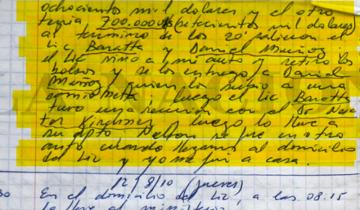 ochocientos mil dolares y el otro
tenia 700.000 u$s (setecientos mil dolares)
al termino de los 20' salieron el
Lic Baratta y Daniel Muñoz
el Lic vino a mi auto y retiro los
bolsos y se los entrego a Daniel
Muñoz quien los subio a una
camioneta, luego el Lic Baratta
tuvo una reunion con el Dr Nes
tor Kirchner y luego lo lleve a
su dpto Nelson se fue en otro
auto cuando llegamos al domicilio
del Lic y yo me fui a casa.
12/8/10 (jueves)
En el domicilio del Lic, a las 08.15
lo lleve al ministerio